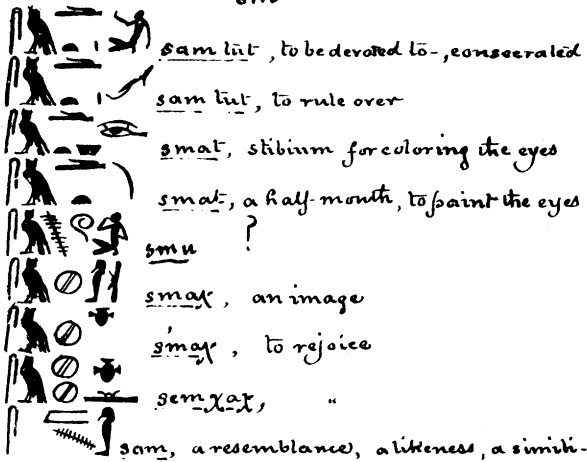 sam tut, to be devoted to-, consecrated
sam tut, to rule over
smat, stibium for coloring the eyes
smat, a half-mouth, to paint the eyes
smu ?
smaχ, an image
smaχ, to rejoice
semχaχ, "
sam, a resemblance, a likeness, a simili-